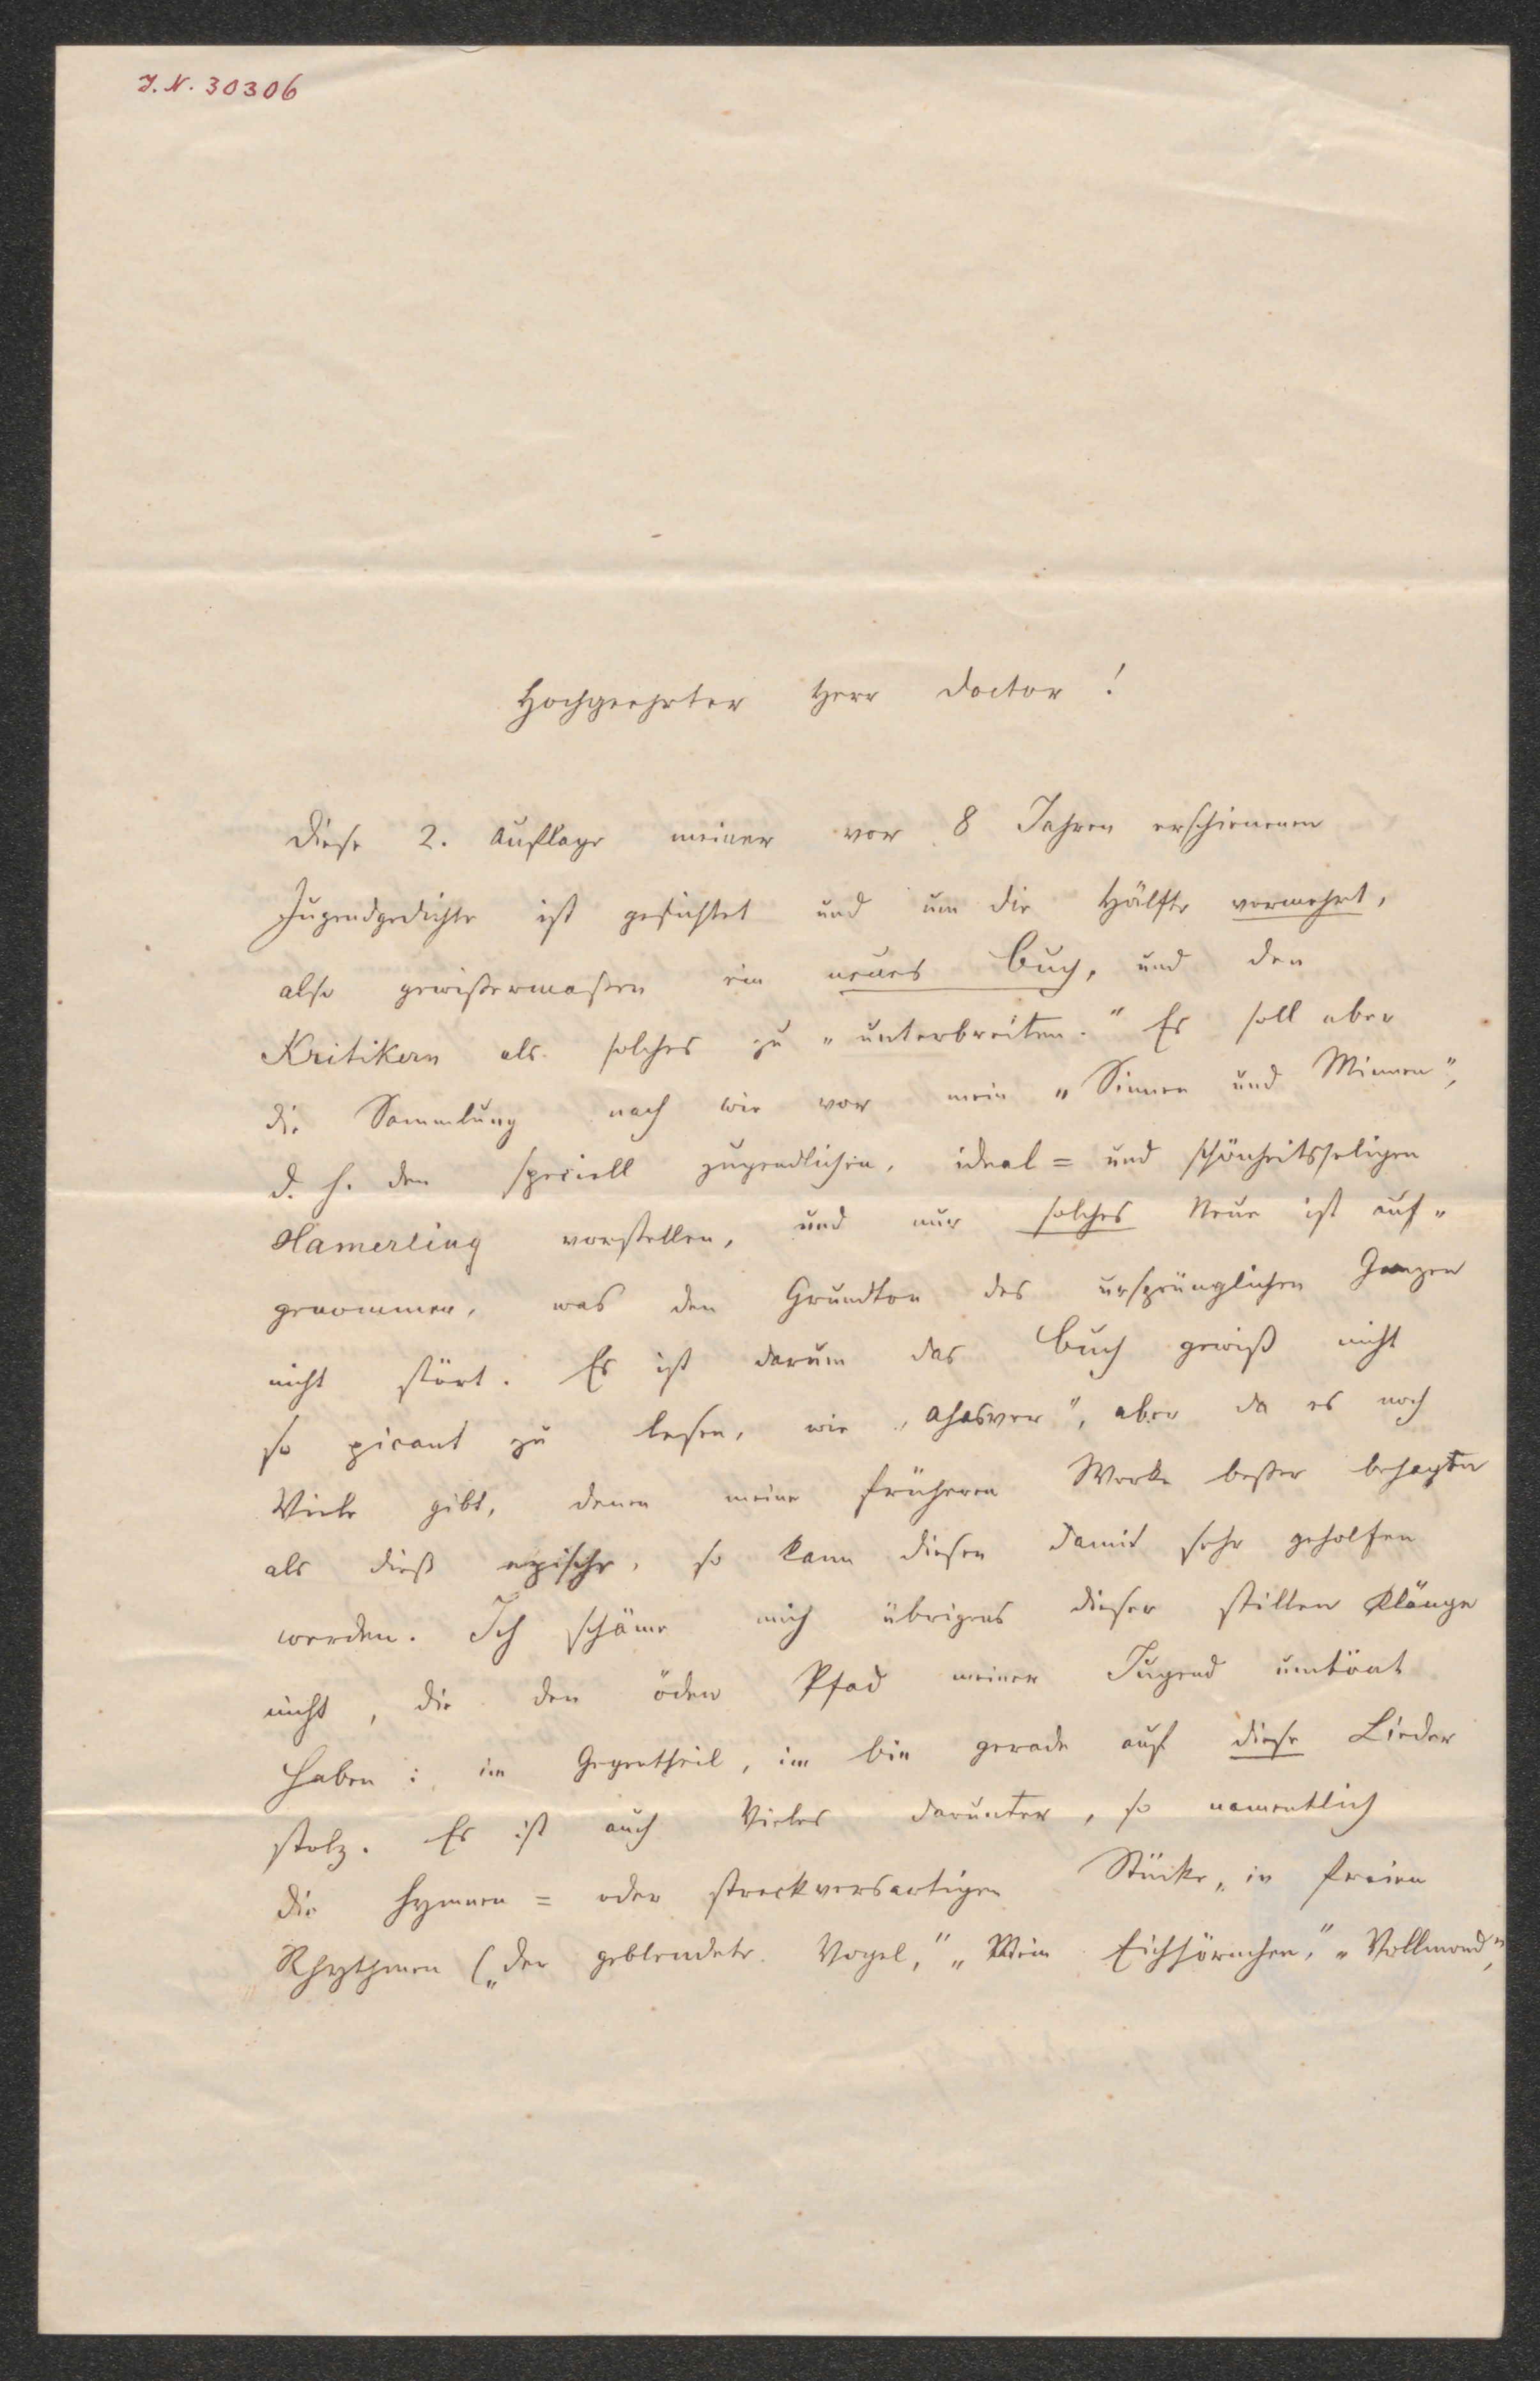 J. N. 30306
Hochgeehrter Herr Doctor!
Diese 2. Auflage meiner vor 8 Jahren erschienenen
Jugendgedichte ist gesichtet und um die Hälfte vermehrt,
also gewißermaßen ein neues Buch, und den
Kritikern als solches zu „unterbreiten." Es soll aber
die Sammlung nach wie vor mein „Sinnen und Minnen",
d. h. den speciell jugendlichen, ideal= und schönheitsseligen
Hamerling vorstellen, und nur solches Neue ist auf„
genommen, was den Grundton des ursprünglichen Ganzen
nicht stört. Es ist darum das Buch gewiß nicht
so picant zu lesen, wie „Ahasver", aber da es noch
Viele gibt, denen meine früheren Werke beßer behagten
als dieß epische, so kann diesen damit sehr geholfen
werden. Ich schäme mich übrigens dieser stillen Klänge
nicht, die den öden Pfad meiner Jugend umtönt
haben: im Gegentheil, im bin gerade auf diese Lieder
stolz. Es ist auch Vieles darunter, so namentlich
die hymnen= oder streckversartigen Stücke „in freien
Rhythmen („Der geblendete Vogel," „Mein Eichhörnchen," „Vollmond",